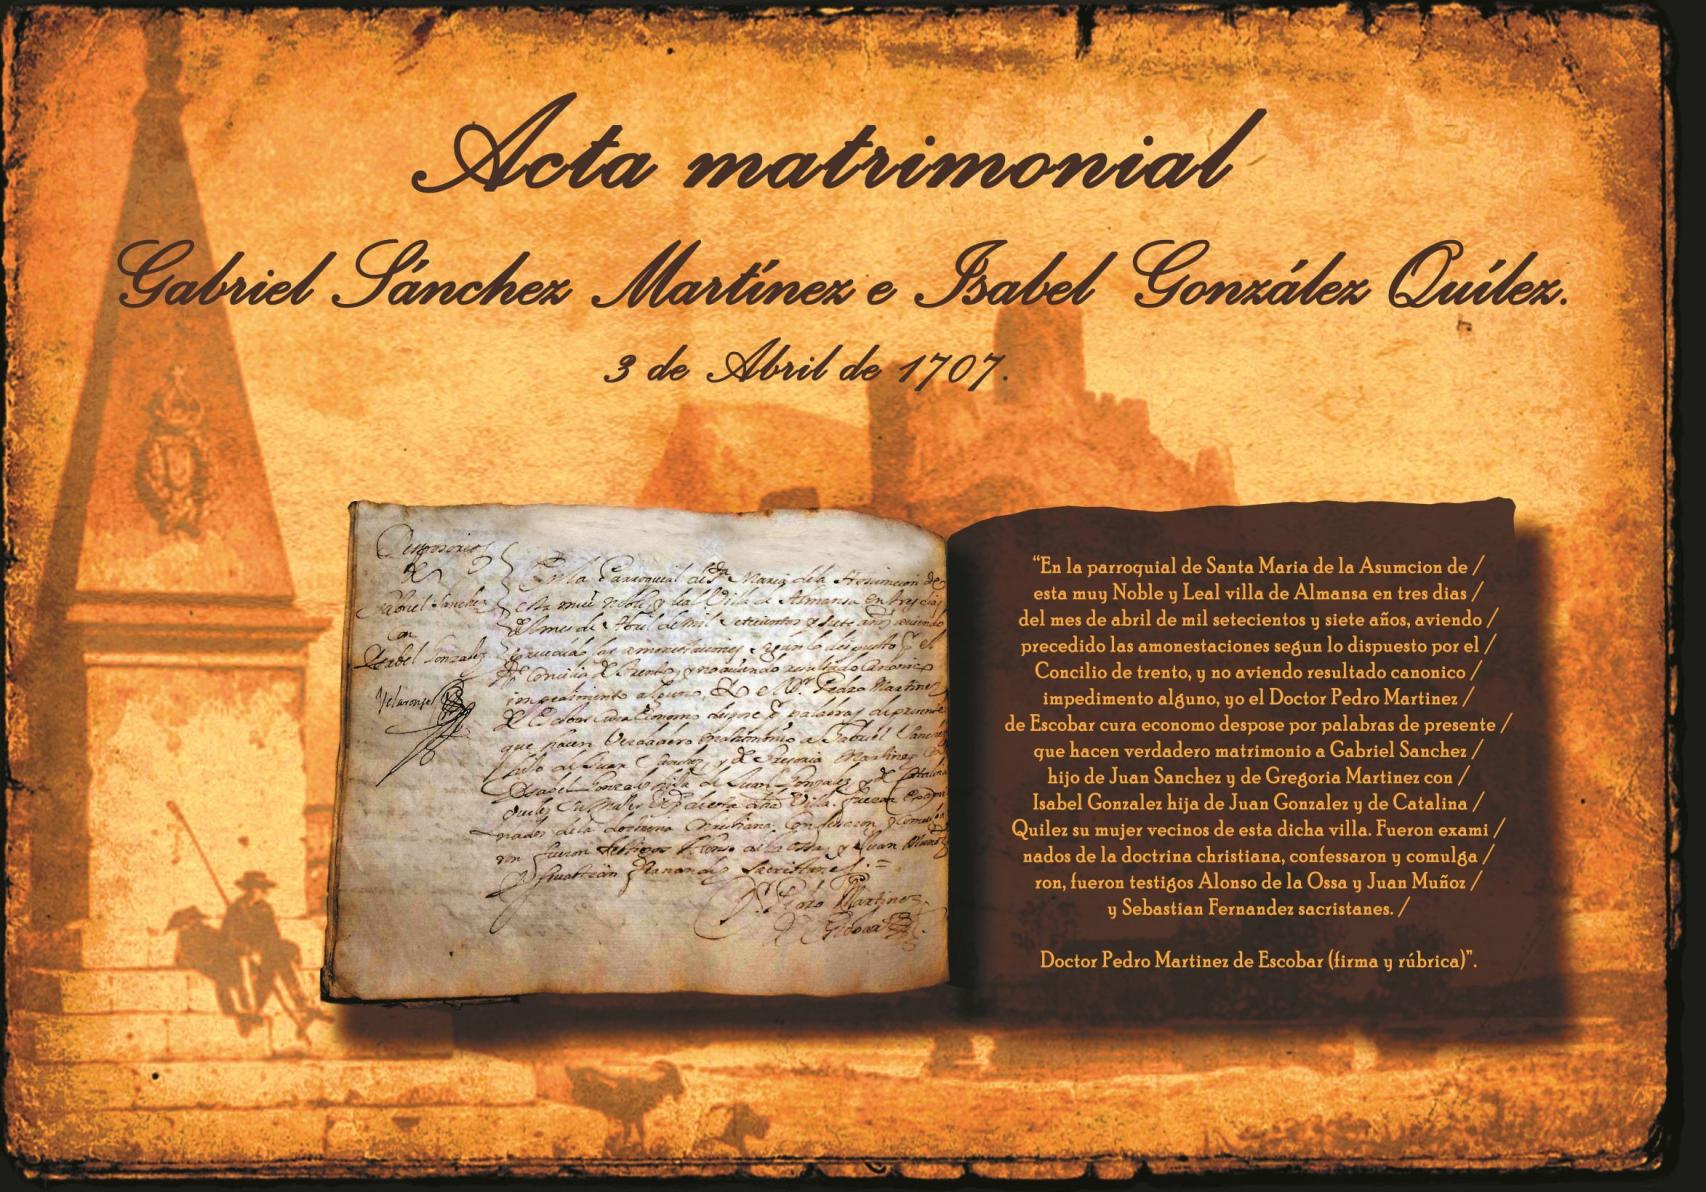 Acta matrimonial
Gabriel Sánchez Martínez e Isabel González Quílez.
3 de Abril de 1707.
Desposorio
de
Gabriel Sanchez
con
Isabel Gonzalez
Velaronse
En la Parroquial de Sta Maria dela Assuncion de
esta mui noble y leal Villa de Almansa en tres dias
del mes de Abril de mil setecientos y siete años aviendo
precedido las amonestaciones segun lo dispuesto por el
Sto Concilio de Trento, y no aviendo resultado Canonico
impedimento alguno, Yo el Dr Pedro Martinez
de Escobar Cura Economo despose por palabras de presente
que hacen Verdadero Matrimonio a Gabriel Sanchez
hijo de Juan Sanchez y de Gregoria Martinez con
Isabel Gonzalez hija de Juan Gonzalez y de Catalina
Quilez su muger vecinos de esta dha Villa. fueron exami
nados dela doctrina Christiana, Confesaron y Comulga
ron fueron testigos Alonso de la Ossa y Juan Muñoz
y Sevastian Fernandez Sacristanes.=
Dr. Pedro Martinez
de Escobar
“En la parroquial de Santa Maria de la Asumcion de /
esta muy Noble y Leal villa de Almansa en tres dias /
del mes de abril de mil setecientos y siete años, aviendo /
precedido las amonestaciones segun lo dispuesto por el /
Concilio de trento, y no aviendo resultado canonico /
impedimento alguno, yo el Doctor Pedro Martinez /
de Escobar cura economo despose por palabras de presente /
que hacen verdadero matrimonio a Gabriel Sanchez /
hijo de Juan Sanchez y de Gregoria Martinez con /
Isabel Gonzalez hija de Juan Gonzalez y de Catalina /
Quilez su mujer vecinos de esta dicha villa. Fueron exami /
nados de la doctrina christiana, confessaron y comulga /
ron, fueron testigos Alonso de la Ossa y Juan Muñoz /
y Sebastian Fernandez sacristanes. /
Doctor Pedro Martinez de Escobar (firma y rúbrica)”.